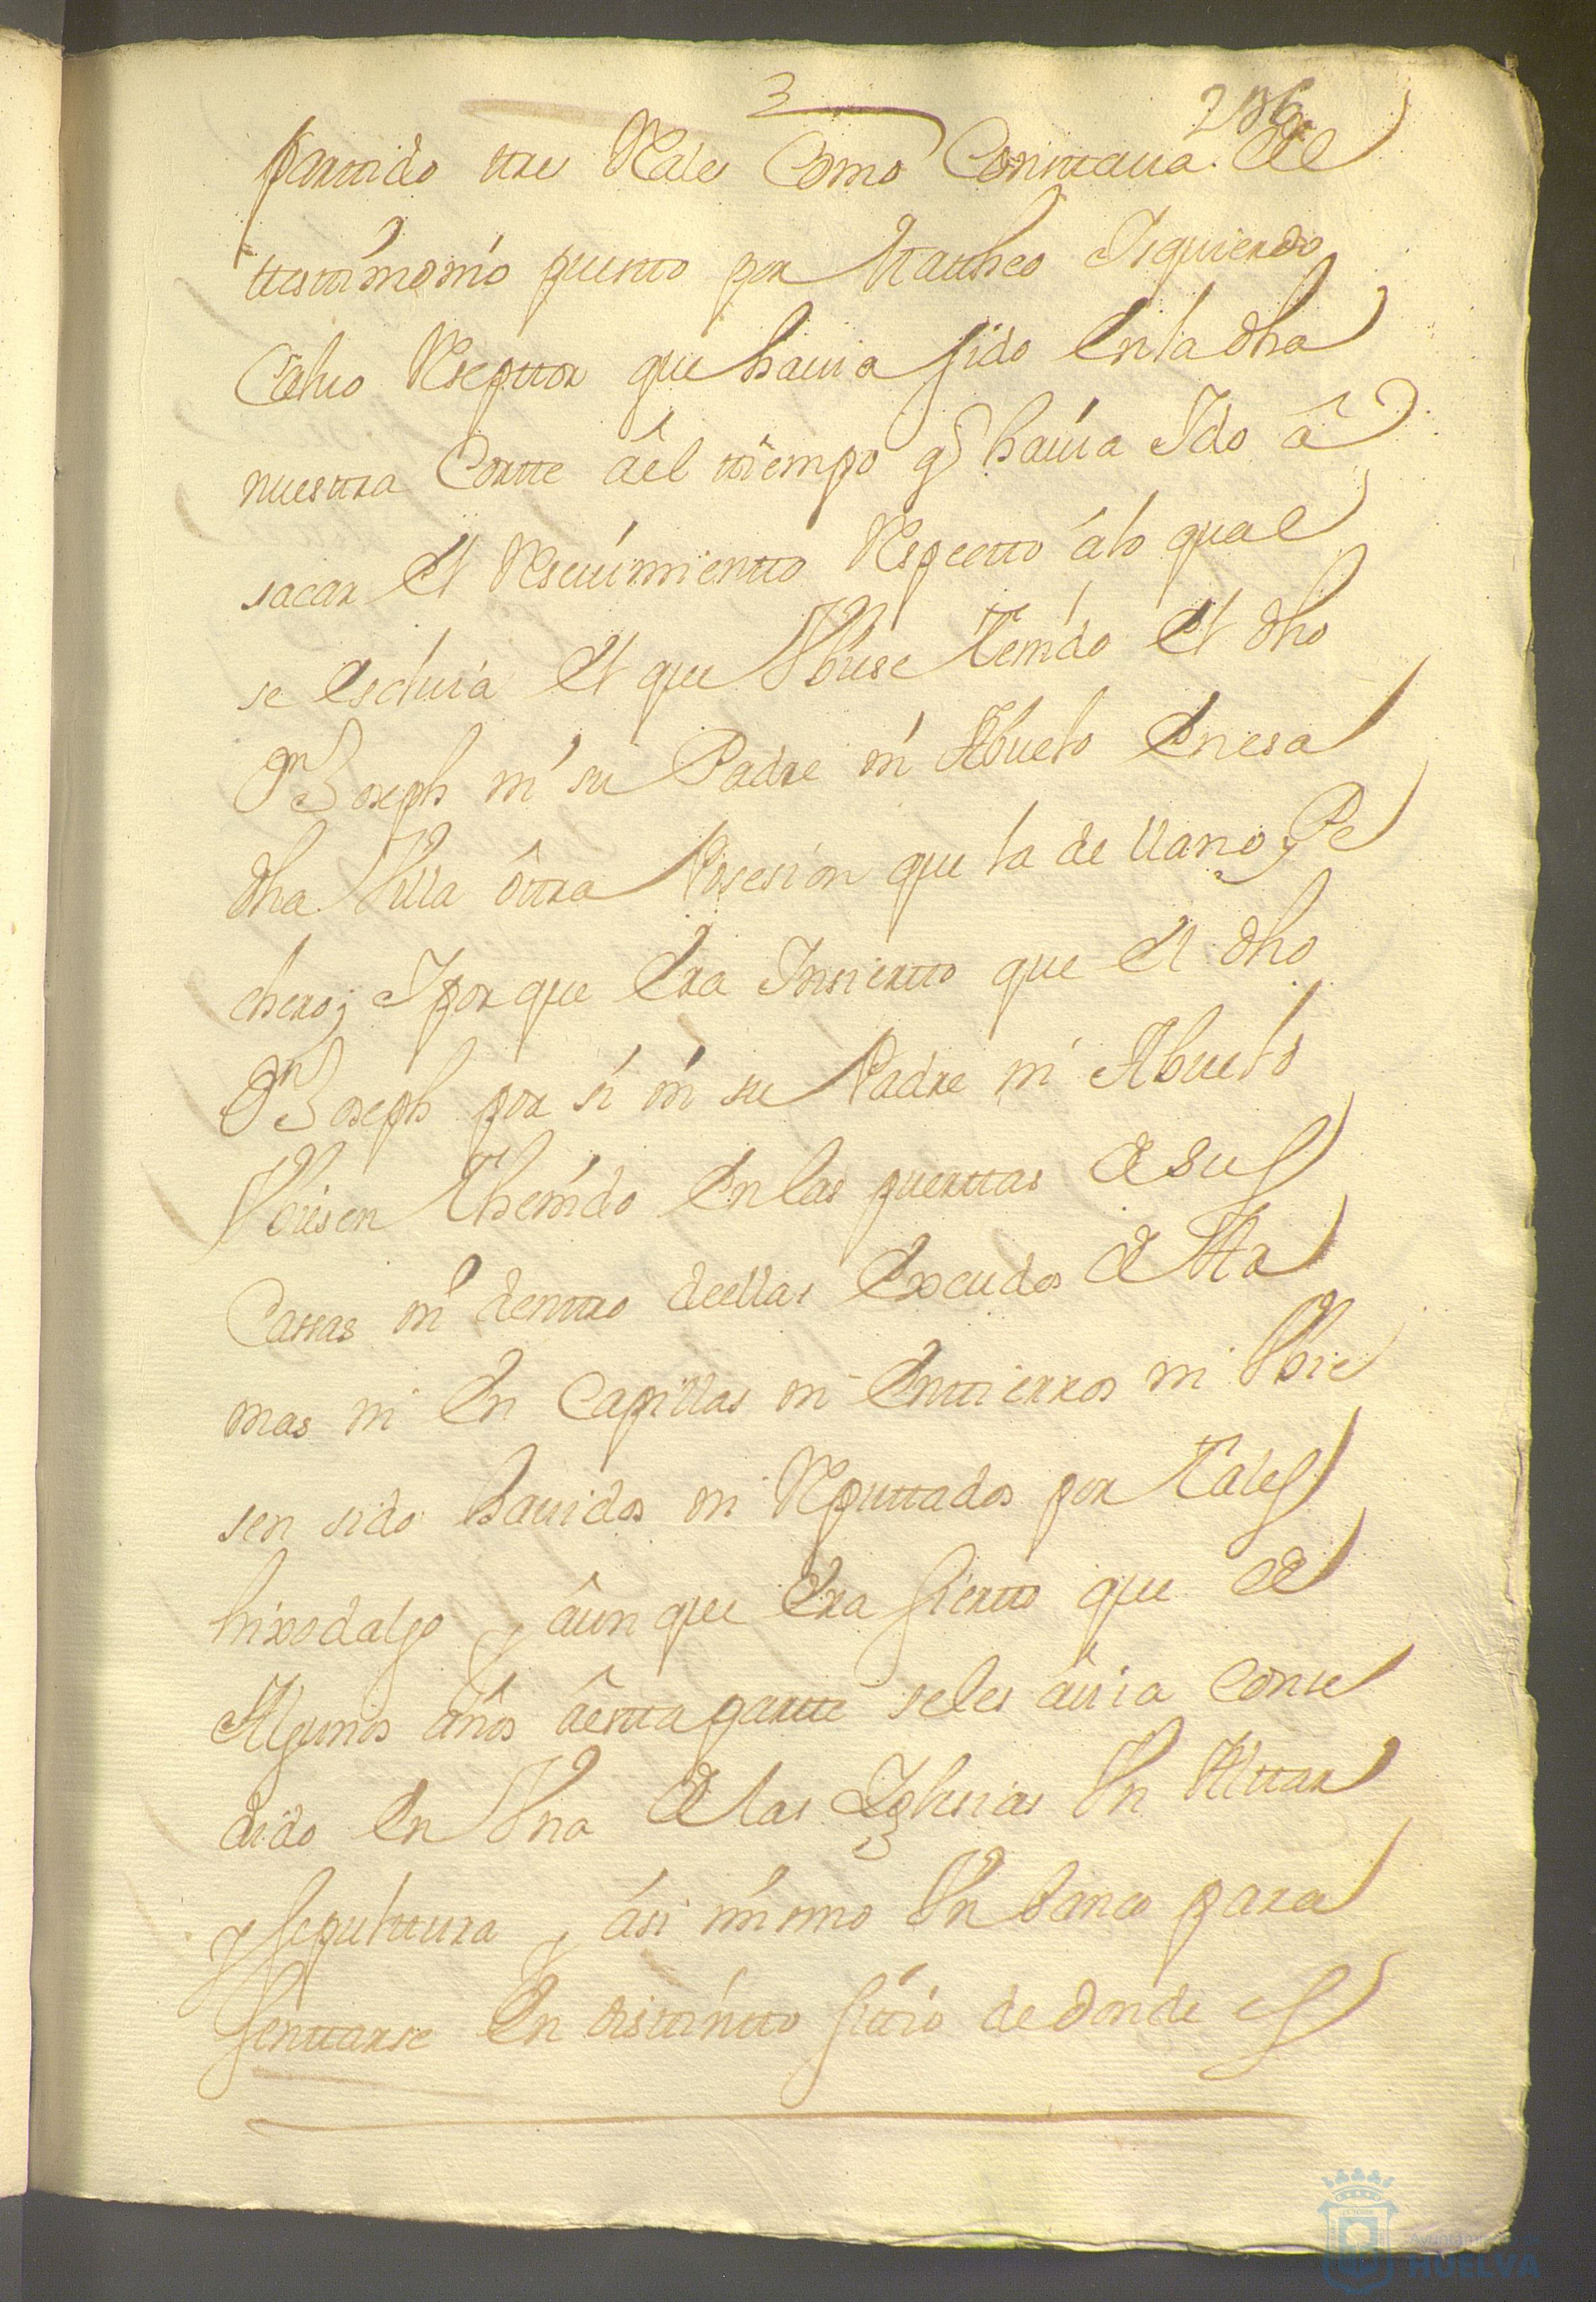 3
partido tres Reales Como Constaua del
testimonio puesto por Matheo Isquierdo
Caluo Reseptor que hauia sido En la dha
nuestra Corte âel tiempo q hauia Ido â
sacar El Reseuimientto Respectto álo qual
se escluia El que Vbiese tenido El dho
Dn Joseph ni su Padre ni Abuelo En esa
dha Villa ôttra Posesion que la de llano Pe
chero; Y porque Era Insiertto que El dho
Dn Joseph por si ni su Padre ni Abuelo
Vbiesen thenido En las puerttas de sus
Cassas ni denttro de ellas Escudos de Ar
mas ni En Capillas ni Enttierros ni Vbie
sen sido hauidos ni Reputtados por tales
hixodalgo y âunque Era siertto que de
Algunos años âestta partte seles âuia Conse
dido En Vna de las Yglesias Vn Alttar
y sepulttura y ási mismo Vn banco para
senttarse En disttintto sittio de donde s
Ayuntamiento de
HUELVA